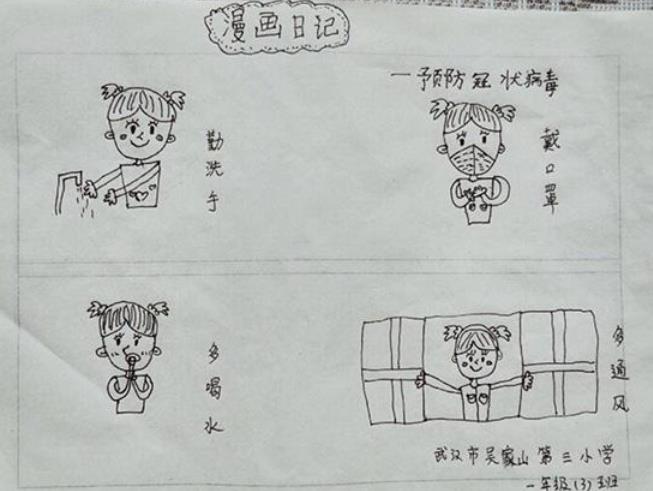 漫画日记
一预防冠状病毒
勤洗手
戴口罩
多喝水
多通风
武汉市吴家山第三小学
一年级(3)班